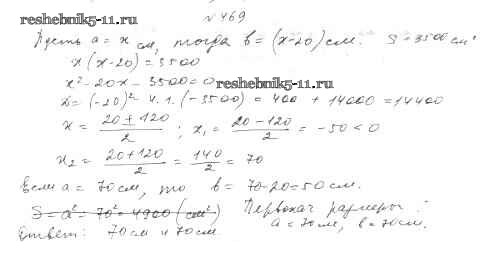 reshebnik5-11.ru
№ 469
Пусть a = x см, тогда b = (x-20) см. S = 3500 см²
x(x-20) = 3500
x² - 20x - 3500 = 0
reshebnik5-11.ru
D = (-20)² 4.1.(-3500) = 400 + 14000 = 14400
x = 20 ± 120 / 2 ; x₁ = 20 - 120 / 2 = -50 < 0
x₂ = 20+120 / 2 = 140 / 2 = 70
Если a = 70 см, то b = 70-20 = 50 см.
S = a² = 70² = 4900 (см²) Первонач размеры:
a = 70 см, b = 70 см.
Ответ: 70 см и 70 см